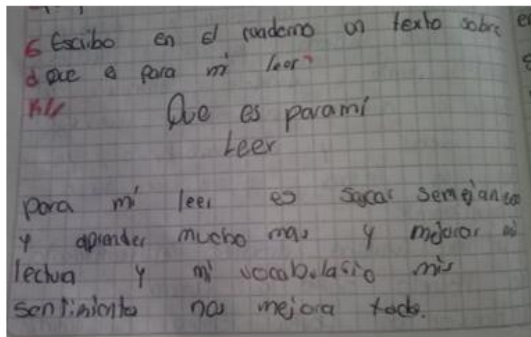 6 Escribo en el cuaderno un texto sobre
d Que e para mi leer?
R//
Que es para mi
Leer
para mi leer es sacar semejanza
y aprender mucho mas y mejorar mi
lectura y mi vocabulario mis
sentimiento nos mejora todo.